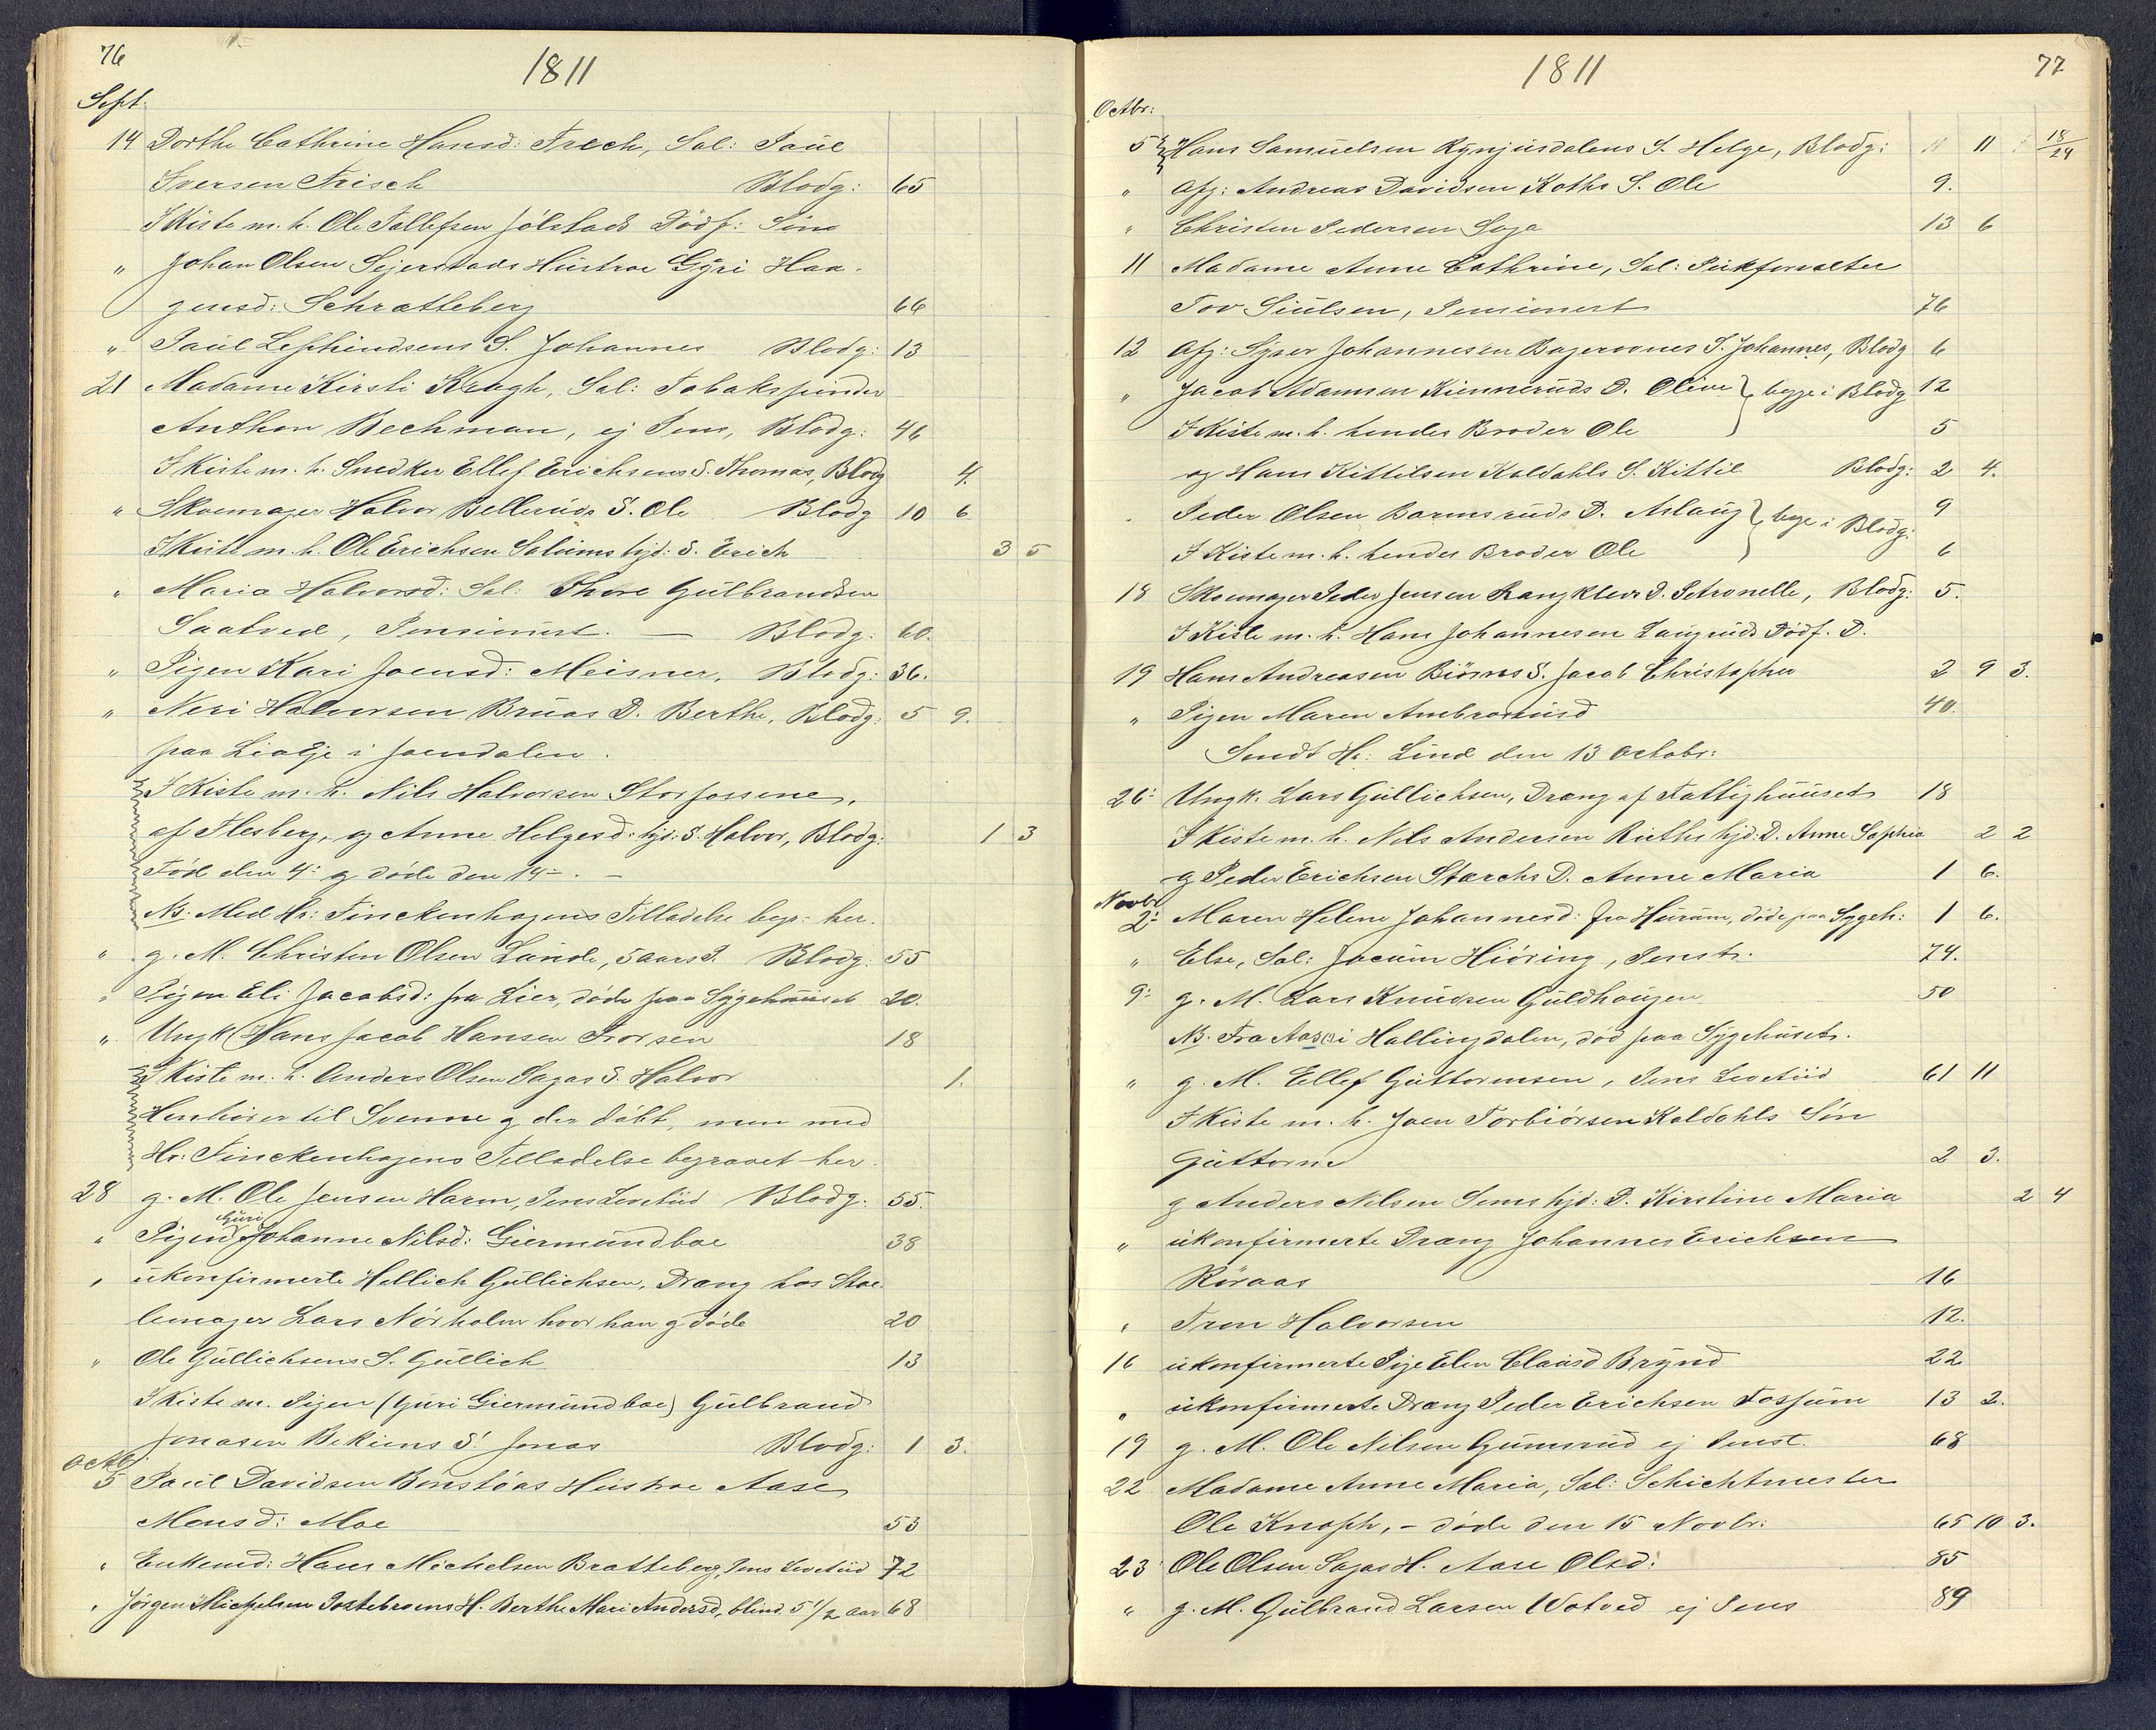 76
1811
Sept.
14 Dorthe Cathrine Hansd: Frech, Sal: Paül
Iversen Frisch Blodg: 65
I Kiste m. h. Ole Tollefsen Jölstads Dödf: Sön
" Johan Olsen Sejerstads Hüstroe Gÿri Haa-
gensd: Schratteberg 66
" Paül Lephindsens S. Johannes Blodg: 13
21 Madame Kirsti Kragh, Sal: Tobakspinder
Anthon Bechman, ej Pens, Blodg: 46
I Kiste m. h. Snedker Ellef Erichsens S. Thomas, Blodg 4.
" Skoemager Halvor Bellerüds S. Ole Blodg 10 6
I Kiste m. h. Ole Erichsen Solüms hjd: S. Erich 3 5
" Maria Halvorsd: Sal: Thore Gülbrandsen
Saatved, Pensionist. — Blodg: 60.
" Pigen Kari Joensd: Meisner, Blodg: 36.
" Neri Halvorsen Brüas D. Berthe, Blodg: 5 9.
paa Lia Eje i Joendalen.
I Kiste m. h. Nils Halvorsen Storfossene,
af Flesberg, og Anne Helgesd: hjd: S. Halvor, Blodg: 1 3
Föd den 4: g döde den 14 -. -
NB. Med Hr: Finckenhagens Tilladelse begr: her.
" g. M. Christen Olsen Lünde, 5 aars P. Blodg: 55
" Pigen Eli Jacobsd: fra Lier, döde paa Sÿgehüüset 20.
" Ungk Hans Jacob Hansen Trorsen 18
I Kiste m. h. Anders Olsen Sagas S. Halvor 1.
Henhörer til Svenne g der döbt, men med
Hr: Finckenhagens Tilladelse begravet her.
28 g. M. Ole Jensen Harm, Pens Levetiid Blodg. 55.
Güri
" Pigen Johanne Nilsd: Giermündboe 38
" ükonfirmerte Hellich Güllichsen, Dreng hos Stoe-
lemager Lars Nörholm hvor han g döde 20
" Ole Güllichsens S. Güllich 13
I Kiste m. Pigen (Güri Giermündboe) Gülbrand
Jonasen Bekiens S. Jonas Blodg: 1 3.
Octbr
5 Paül Davidsen Bönstöas Hüstroe Aase
Monsd: Moe 53
" Enkemd: Hans Michelsen Bratteberg, Pens Levetiid 72
" Jörgen Michelsen Postebroens H. Berthe Mari Andersd, blind 5 1/2 aar 68
77
1811
Octbr:
5 Hans Samüelsen Rÿnjüsdalens S. Helge, Blodg: 11 18/24
" Afg: Andreas Davidsen Koths S. Ole 9.
" Christen Pedersen Soga 13 6
11 Madame Anne Cathrine, Sal: Pükforvalter
Tov Siülsen, Pensionist 76
12 Afg: Siver Johannesen Bagerovnes S. Johannes, Blodg 6
" Jacob Adamsen Kiennerüds D. Olive } begge i Blodg 12
I Kiste m. h. hendes Broder Ole 5
og Hans Kittilsen Koldahls S. Kittil Blodg: 2 4.
. Peder Olsen Barmsrüds D. Aslaüg } bege i Blodg: 9
I Kiste m. h. hendes Broder Ole 6
18 Skoemager Peder Jensen Rangklevs D. Petronelle, Blodg: 5.
I Kiste m. h. Hans Johannesen Langrüds Dödf. D.
19 Hans Andreasen Biörns S. Jacob Christopher 2 9 3.
" Pigen Maren Ambrosiüsd 40.
Sendt Hr: Lind den 13 Octobr:
26: Ungk. Lars Güllichsen, Dreng af Fattighüüset 18
I Kiste m. h. Nils Andersen Rüths hjd: D. Anne Sophia 2 2
g Peder Erichsen Starchs D. Anne Maria 1 6.
Novbr
2: Maren Helene Johannesd: fra Hürüm, döde paa Sygeh: 1 6.
" Else, Sal: Jocüm Hiöring, Penst. 74.
9: g. M. Lars Knüdsen Güldhaügen 50
NB. Fra Aas(?) i Hallingdalen, död paa Sÿgehüset.
" g. M. Ellef Güttormsen, Pens Levetiid 61 11
I Kiste m. h. Joen Torbiörsen Koldahls Sön
Güttorm 2 3.
g Anders Nilsen Sems hjd: D. Kirstine Maria 2 4
" ükonfirmerte Dreng Johannes Erichsen
Röraas 16
" Tron Halvorsen 12.
16 ükonfirmerte Pige Elen Claüsd Brÿnd 22
" ükonfirmerte Dreng Peder Erichsen Fossüm 13 2.
19 g. M. Ole Nilsen Gümsrüd ej Penst. 68
22 Madame Anne Maria, Sal: Schichtmester
Ole Knoph, - döde den 15 Novbr: 65 10 3.
23 Ole Olsen Sagas H. Aase Olsd: 85
" g. M. Gülbrand Larsen Wotved ej Pens 89